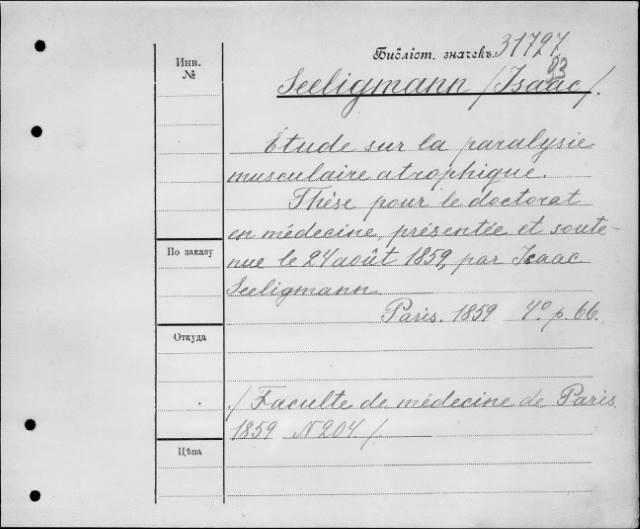 Библіот. значекъ. 31797
93
Инв.
№
Seeligmann /Isaac/.
Étude sur la paralysie
musculaire atrophique.
Thèse pour le doctorat
en médecine, présentée et soute-
nue le 24 août 1859, par Isaac
Seeligmann
Paris. 1859 4º p. 66.
По заказу
Откуда
/Faculte de médecine de Paris.
1859 N 204/.
Цѣна